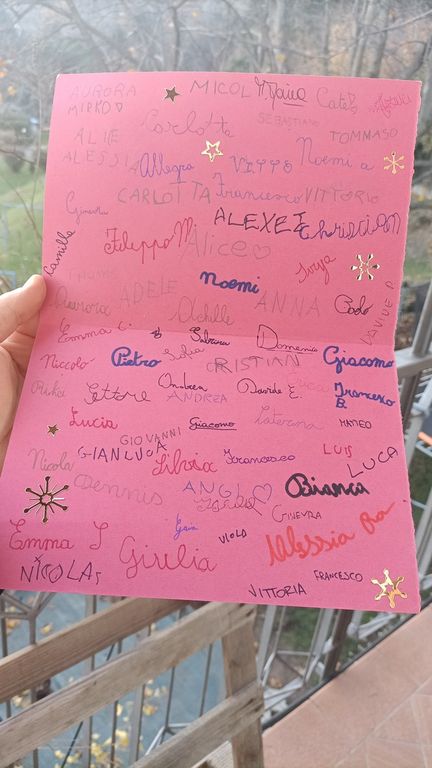 AURORA MICOL Maira Cate!
MIRKO SEBASTIANO
ALICE Carlotta TOMMASO
ALESSIA Allegra VITTO Noemi a
CARLOTTA Francesco VITTORIO
Ginevra ALEXEI Christian
Camilla Filippo M Alice♡
THOMAS Noemi
Aurora ADELE Achille ANNA Edo DAVIDE P
Emma C. Sabrina Domenico
Niccolò Pietro Sofia CRISTIAN Giacomo
Ettore Andrea ANDREA Davide E. Francesco B.
Lucia GIOVANNI Giacomo Caterina MATTEO
Nicola GIANLUCA Silvia Francesco LUIS LUCA
Dennis ANGI♡ Bianca
Emma S Giulia Gaia VIOLA GINEVRA Alessia Ra
NICOLAS VITTORIA FRANCESCO